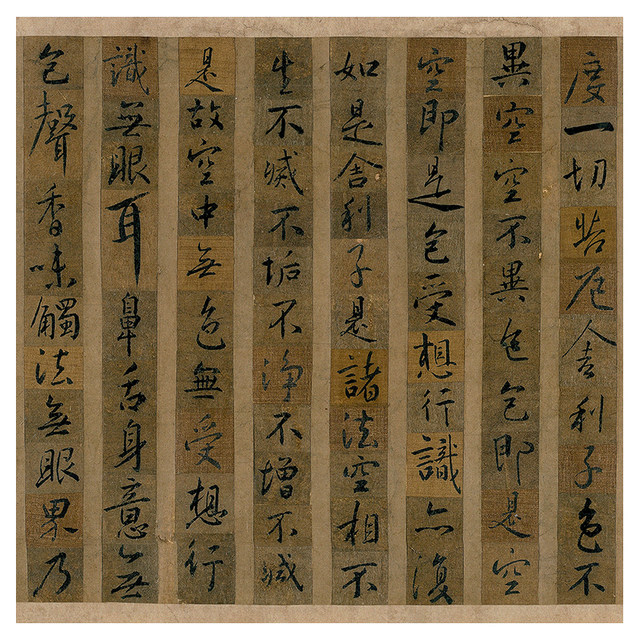 度一切苦厄舍利子色不
異空空不異色色即是空
空即是色受想行識亦復
如是舍利子是諸法空相不
生不滅不垢不淨不增不減
是故空中無色無受想行
識無眼耳鼻舌身意無
色聲香味觸法無眼界乃